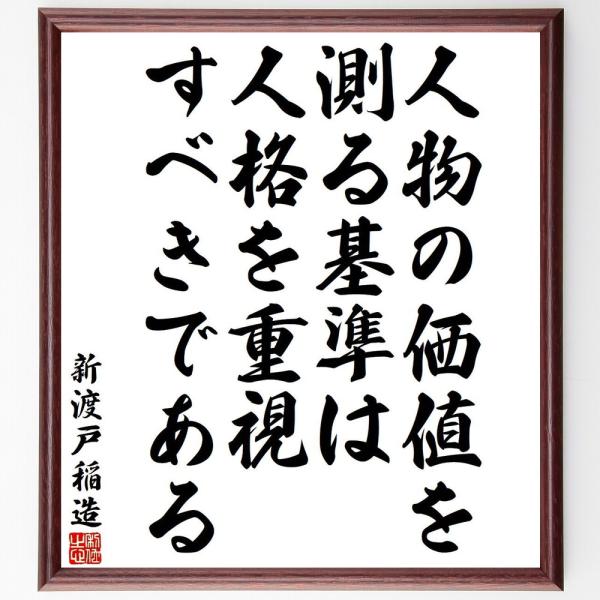 人物の価値を
測る基準は
人格を重視
すべきである
新渡戸稲造